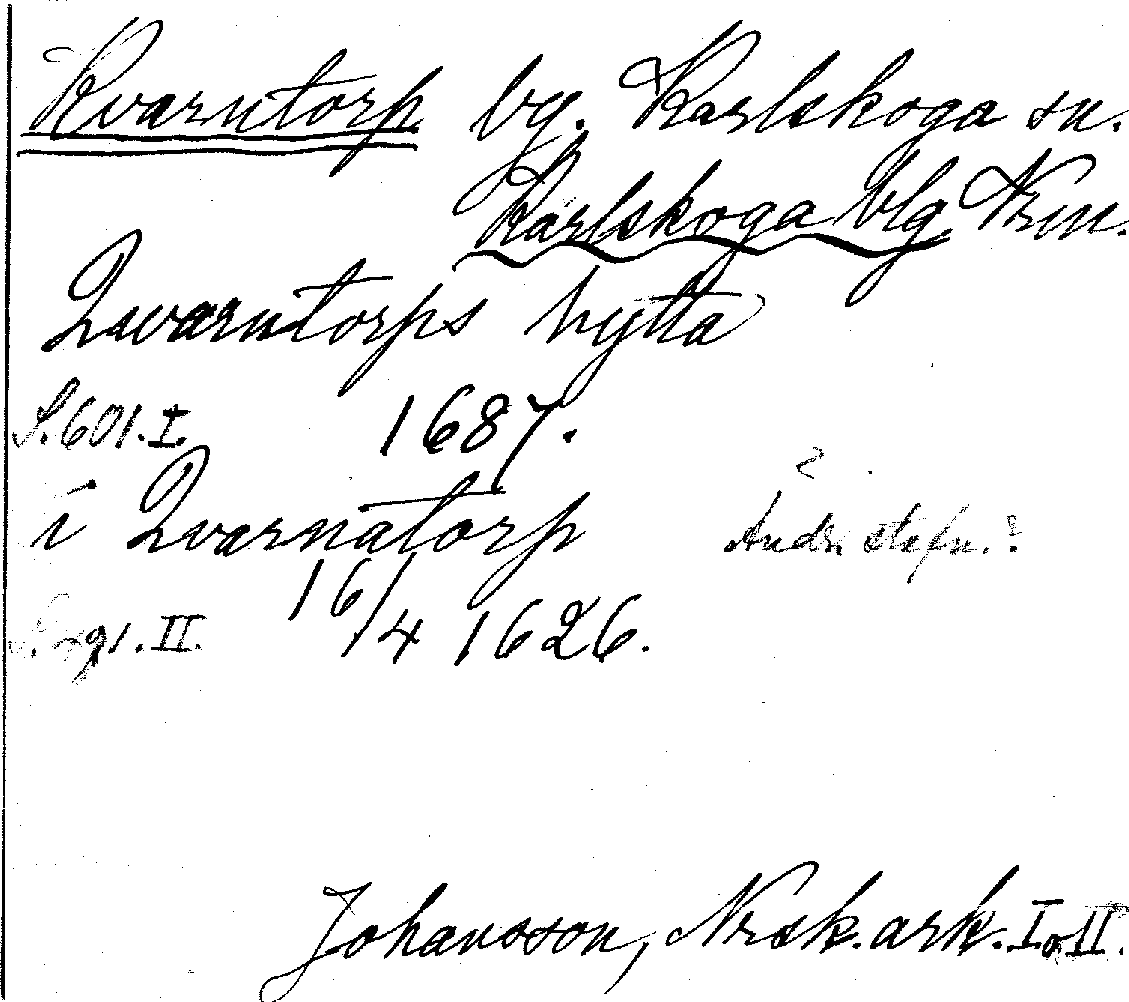 Kvarntorp bg. Karlskoga sn.
Karlskoga blg Nrm.
Qwarntorps hytta
S. 601. I. 1687.
i Qvarnatorp
?
stafn.?
16/4 1626.
91. II.
Johansson, Nrsk. ark. I o. II.